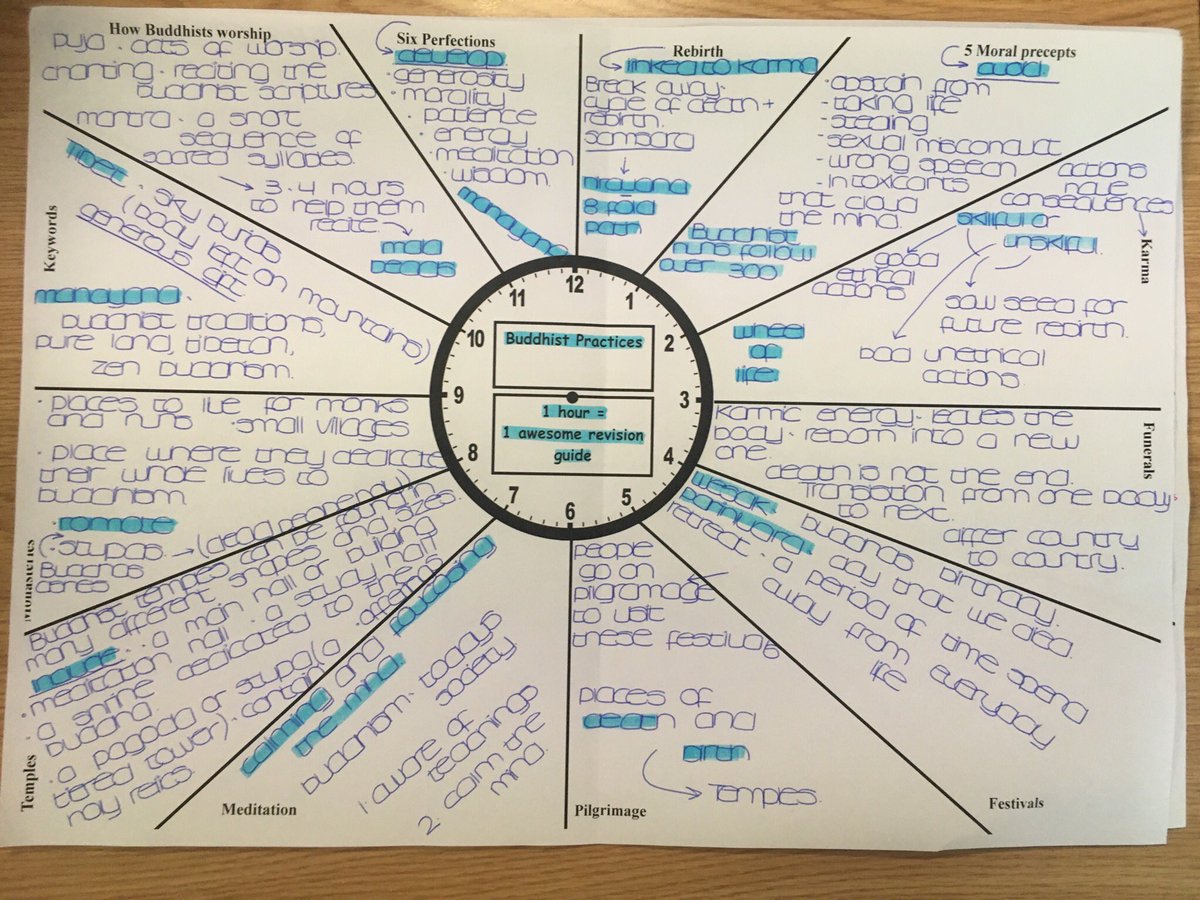 How Buddhists worship
puja - acts of worship.
chanting - reciting the
Buddhist scriptures
mantra - a short
sequence of
sacred syllables.
3-4 hours
to help them
recite.
mala
beads
Six Perfections
develop
· generosity
· morality
· patience
· energy
· meditation
· wisdom.
mahayana
Rebirth
linked to karma
Break away-
cycle of death +
rebirth.
samsara
nirvana
8 fold
path
5 Moral precepts
avoid
· abstain from
- taking life
- stealing
- sexual misconduct
- wrong speech
- intoxicants
that cloud
the mind.
Buddhist
nuns follow
over 300
Karma
actions
have
consequences
skilful or
unskilful.
good
ethical
actions
sow seed for
future rebirth.
bad unethical
actions.
wheel
of
life
Funerals
Karmic energy - leaves the
body - reborn into a new
one.
death is not the end.
Transition from one body
to next.
differ country
to country.
Festivals
wesak - buddhas birthday.
parinirvana - day that we died.
retreat - a period of time spend
away from everyday
life
Pilgrimage
people
go on
pilgramage
to visit
these festivals
places of
death and
birth
Temples.
Meditation
calming and focusing
the mind.
buddhism - todays
society
1. aware of
teachings
2. calm the
mind.
Temples
Buddhist temples can be found in
many different shapes and sizes.
include - a main hall or building
· meditation hall · a study hall
· a shrine dedicated to the
building.
· a pagoda or stupa (a
tiered tower) - contain
holy relics.
Monasteries
· places to live for monks
and nuns · small villages
· place where they dedicate
their whole lives to
buddhism
· remote
(· stupas. → (dead people)
Buddhas
Keywords
Tibet · sky burials
(body left on mountains)
generous gift
mahayana -
buddhist traditions,
pure land, tibetan,
zen buddhism.
11
12
1
10
2
9
3
8
4
7
6
5
Buddhist Practices
1 hour =
1 awesome revision
guide